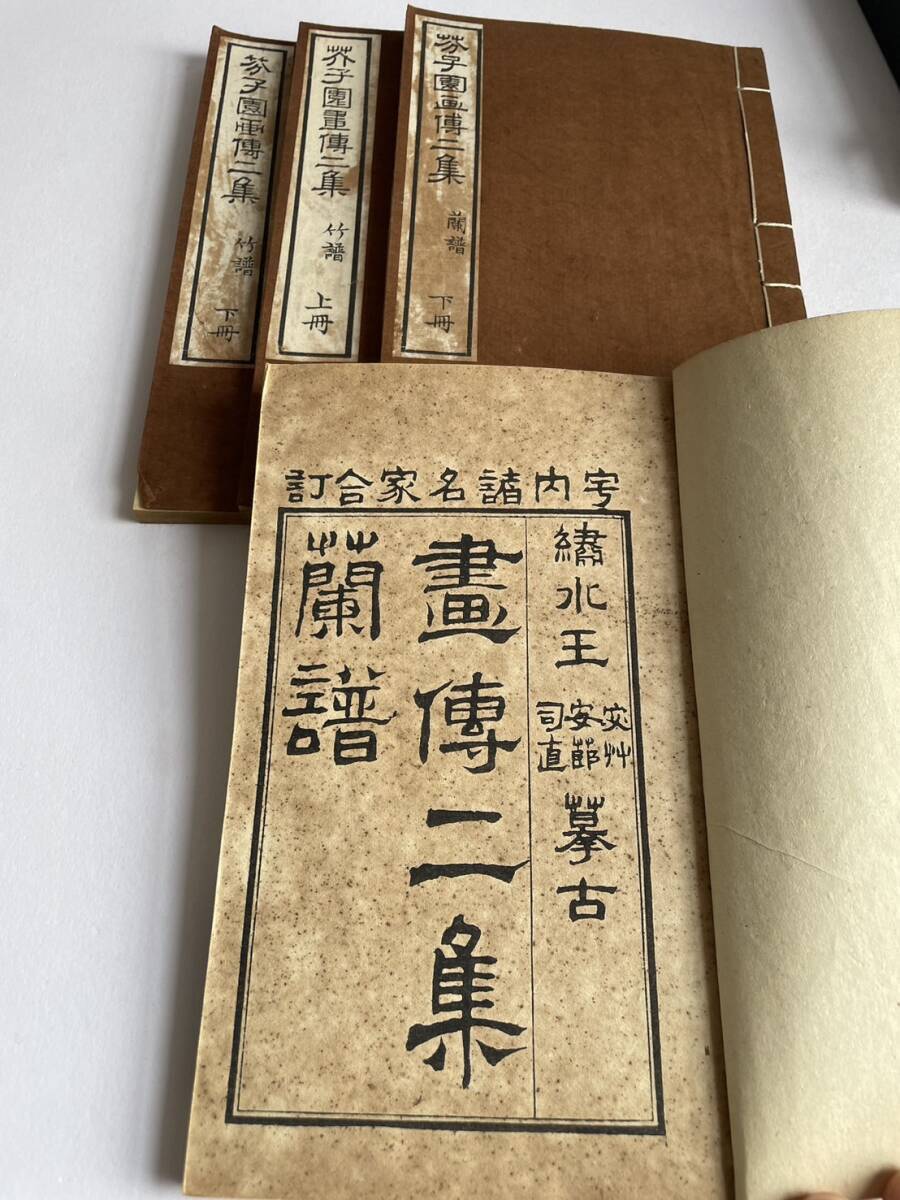 芥子園画傳二集
蘭譜
下冊
芥子園畫傳二集
竹譜
上冊
芥子園画傳二集
竹譜
下冊
宇内諸名家合訂
繡水王宓艸安節司直摹古
畫傳二集
蘭譜